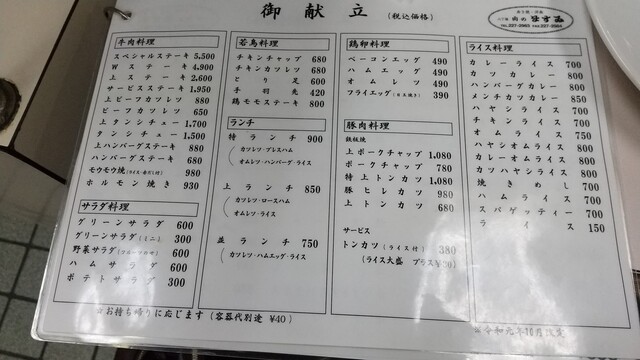 御献立 (税込価格)
肉の
TEL.
牛肉料理
スペシャルステーキ 5,500
Wステーキ 4,900
上ステーキ 2,600
サービスステーキ 1,950
上ビーフカツレツ 880
ビーフカツレツ 650
上タンシチュー 1,700
タンシチュー 1,500
上ハンバーグステーキ 880
ハンバーグステーキ 680
モウモウ焼 980
ホルモン焼き 930
サラダ料理
グリーンサラダ 600
グリーンサラダ(ミニ) 300
野菜サラダ 600
ハムサラダ 600
ポテトサラダ 300
若鳥料理
チキンチャップ 680
チキンカツレツ 680
とり足 600
手羽先 420
鶏モモステーキ 800
ランチ
特ランチ 900
カツレツ・プレスハム
オムレツ・ハンバーグ・ライス
上ランチ 850
カツレツ・ロースハム
オムレツ・ライス
並ランチ 750
カツレツ・ハムエッグ・ライス
鶏卵料理
ベーコンエッグ 490
ハムエッグ 490
オムレツ 490
フライエッグ(目玉焼き) 390
豚肉料理
鉄板焼
上ポークチャップ 1,080
ポークチャップ 780
特上トンカツ 1,080
豚ヒレカツ 980
上トンカツ 680
サービス
トンカツ(ライス付) 380
(ライス大盛 プラス
ライス料理
カレーライス 700
カツカレー 800
ハンバーグカレー 800
メンチカツカレー 850
ハヤシライス 700
チキンライス 700
オムライス 750
ハヤシオムライス 800
カレーオムライス 800
カツハヤシライス 800
焼きめし 700
ハムライス 700
スパゲッティー 700
ライス 150
☆お持ち帰りに応じます(容器代別途 ¥40)
※令和元年10月改定